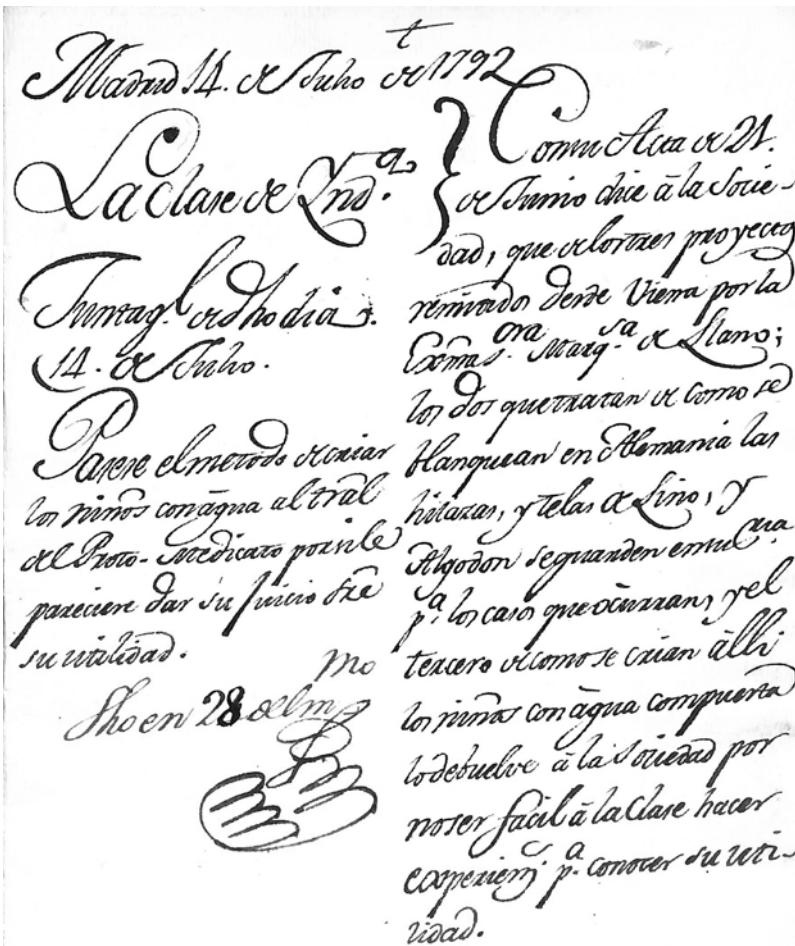 t
Madrid 14. de Julio de 1792
La Clase de Ynd.a
Junta gl. de dho dia
14. de Julio.
Pasese el metodo de criar
los niños con agua al tral
del Proto-Medicato por si le
pareciere dar su Juicio sre
su utilidad.
fho en 28 del mmo
Con su Acta de 21.
de Junio dice â la Socie-
dad, que de los tres proyectos
remitidos desde Viena por la
Exma Sora Marqsa de Llano;
los dos que tratan de como se
blanquean en Alemania las
hilazas, y telas de Lino, y
Algodon se guarden en su
pa. los casos que ôcurran, y el
tercero de como se crian âlli
los niños con âgua compuesta
lo debuelve â la Sociedad por
no ser facil â la Clase hacer
experiens. pa. conocer su uti-
lidad.